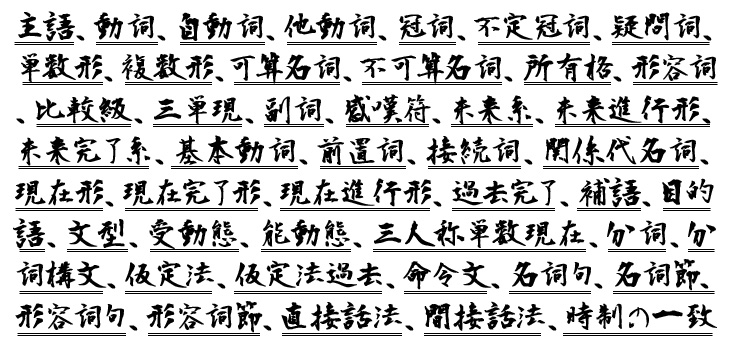 主語、動詞、自動詞、他動詞、冠詞、不定冠詞、疑問詞、
単数形、複数形、可算名詞、不可算名詞、所有格、形容詞
、比較級、三単現、副詞、感嘆符、未来系、未来進行形、
未来完了系、基本動詞、前置詞、接続詞、関係代名詞、
現在形、現在完了形、現在進行形、過去完了、補語、目的
語、文型、受動態、能動態、三人称単数現在、分詞、分
詞構文、仮定法、仮定法過去、命令文、名詞句、名詞節、
形容詞句、形容詞節、直接話法、間接話法、時制の一致